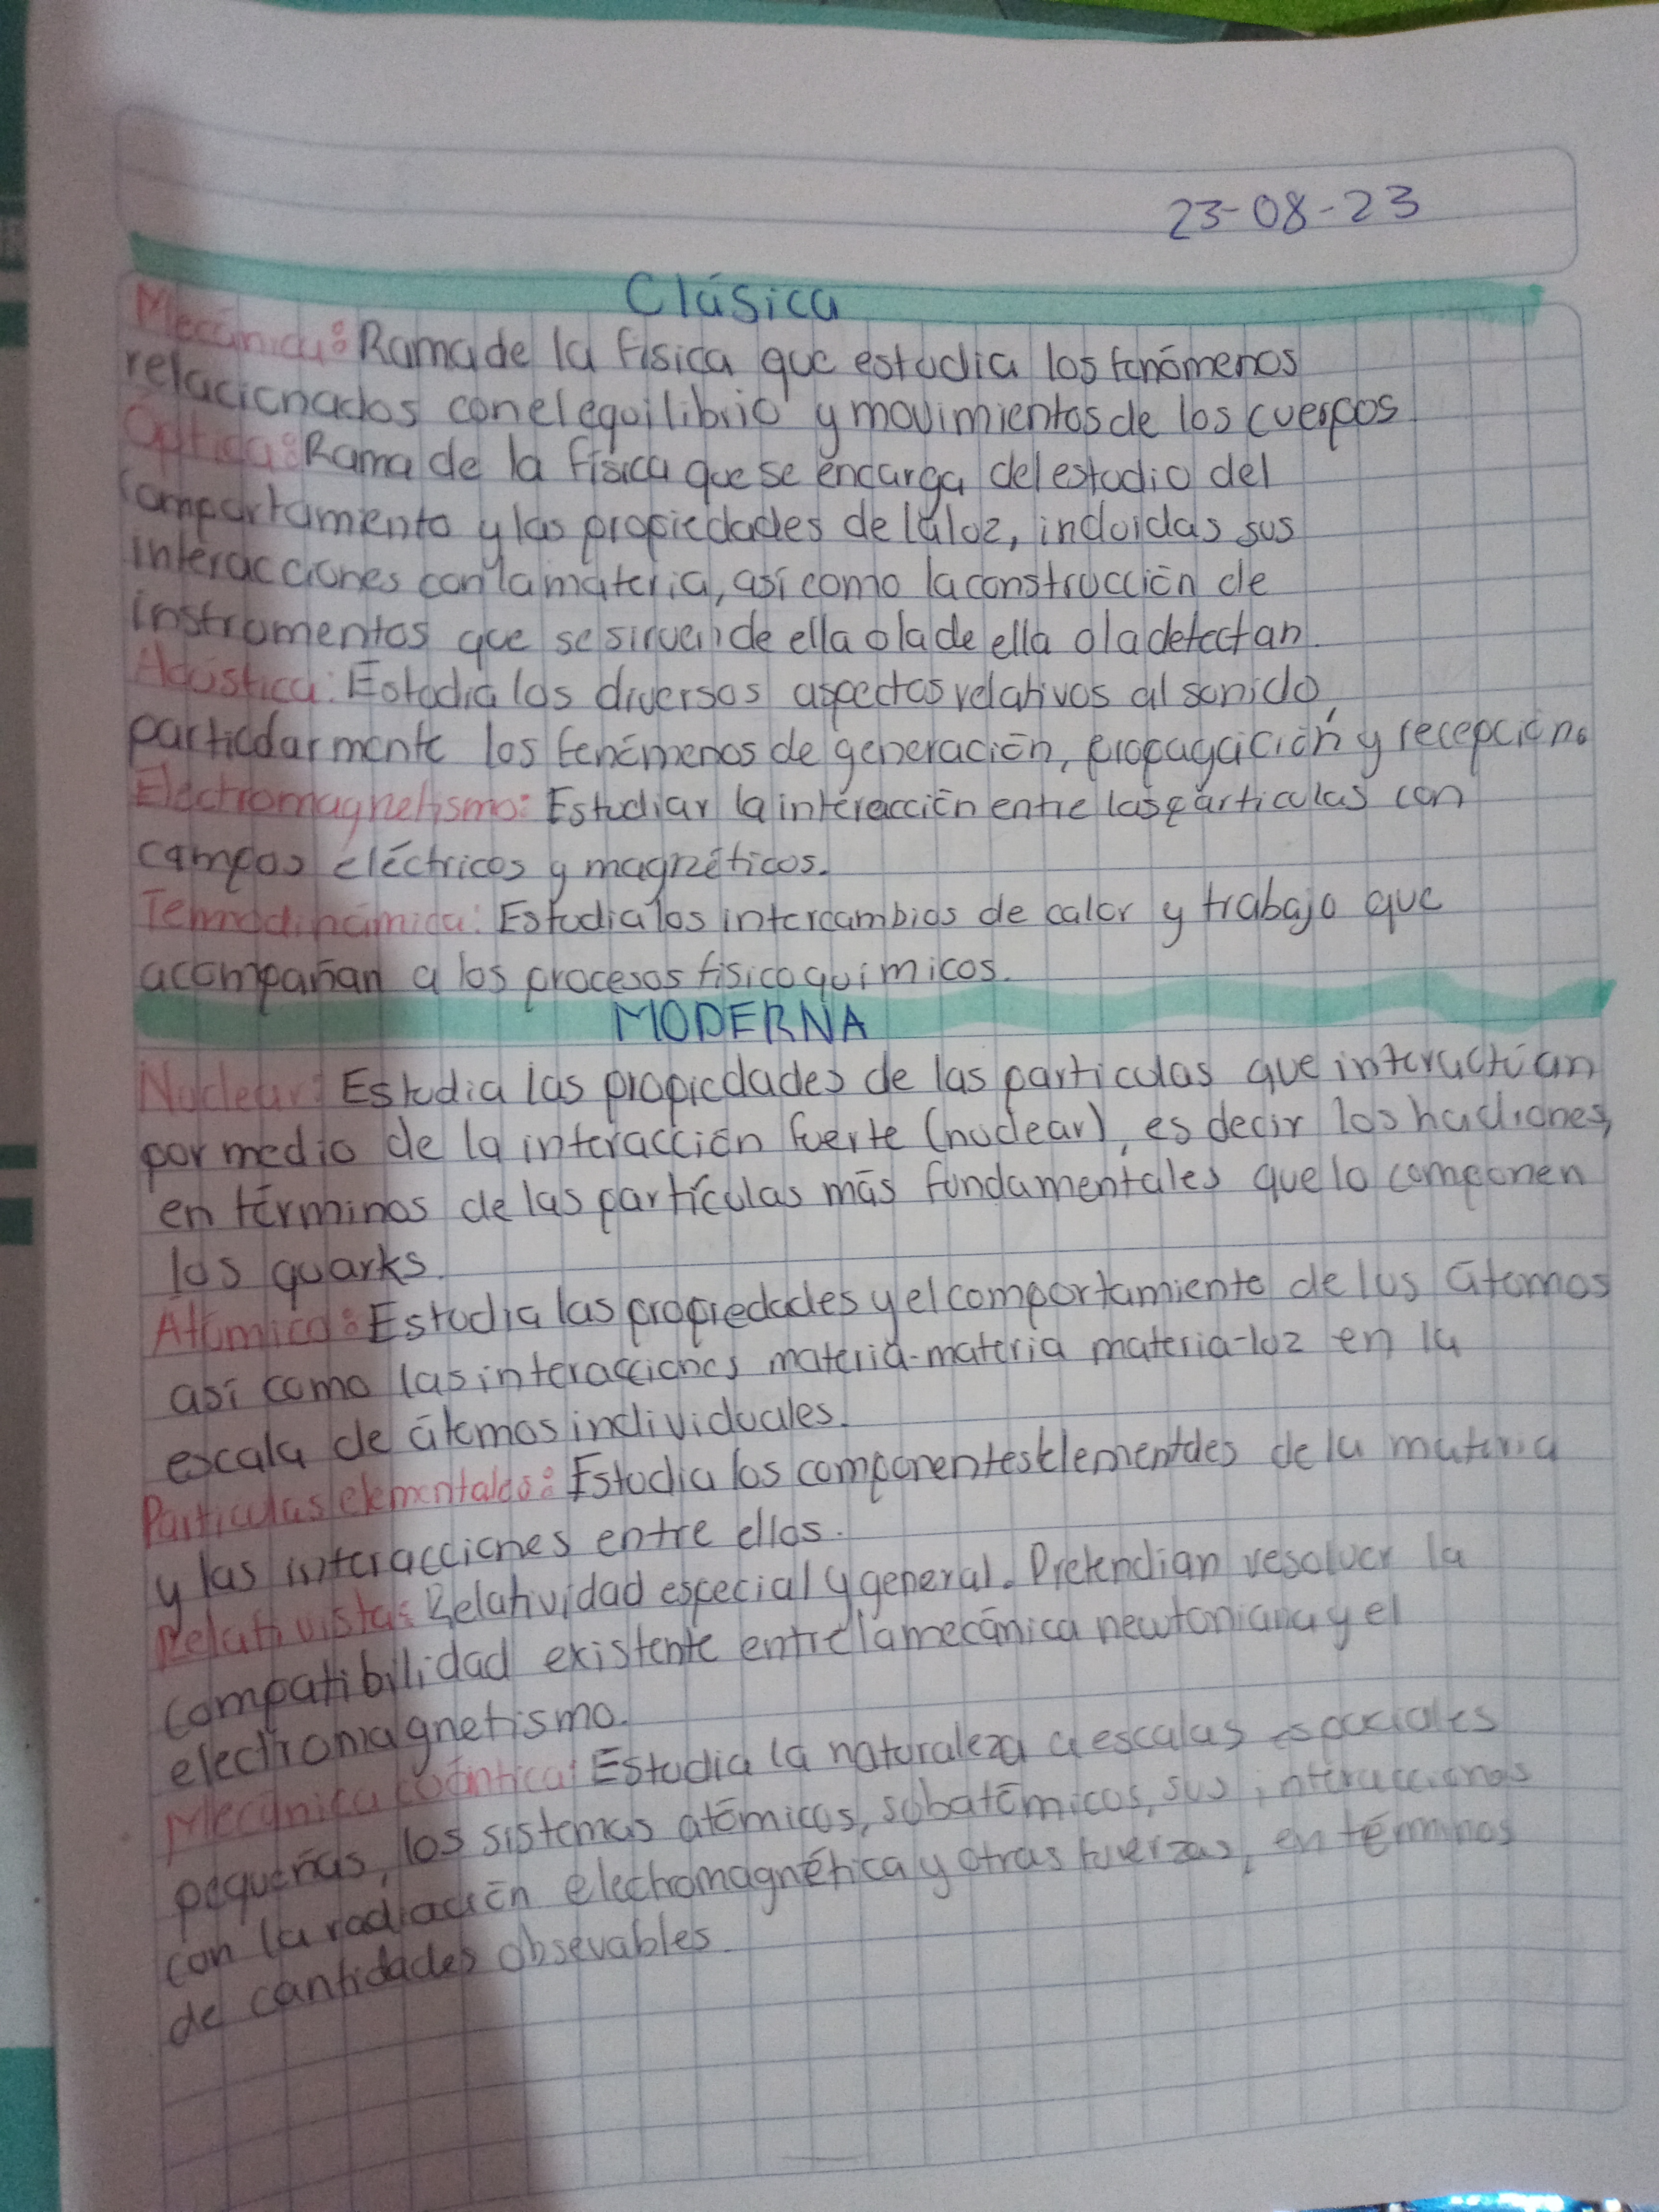 23-08-23
Clásica
Mecánica: Rama de la física que estudia los fenómenos
relacionados con el equilibrio y movimientos de los cuerpos
Óptica: Rama de la física que se encarga del estudio del
comportamiento y las propiedades de la luz, incluidas sus
interacciones con la materia, así como la construcción de
instrumentos que se sirven de ella o la de ella o la detectan.
Acústica: Estudia los diversos aspectos relativos al sonido,
particularmente los fenómenos de generación, propagación y recepción.
Electromagnetismo: Estudiar la interacción entre las partículas con
campos eléctricos y magnéticos.
Termodinámica: Estudia los intercambios de calor y trabajo que
acompañan a los procesos fisicoquímicos.
MODERNA
Nuclear: Estudia las propiedades de las particulas que interactúan
por medio de la interacción fuerte (nuclear), es decir los hadrones,
en términos de las partículas más fundamentales que lo componen
los quarks.
Atómica: Estudia las propiedades y el comportamiento de los átomos
así como las interacciones materia-materia materia-luz en la
escala de átomos individuales.
Particulas elementales: Estudia los componentes elementales de la materia
y las interacciones entre ellos.
Relativista: Relatividad especial y general. Pretendian resolver la
compatibilidad existente entre la mecánica newtoniana y el
electromagnetismo.
Mecánica cuántica: Estudia la naturaleza a escalas espaciales
pequeñas, los sistemas atómicos, subatómicos, sus interacciones
con la radiación electromagnética y otras fuerzas, en términos
de cantidades obsevables.